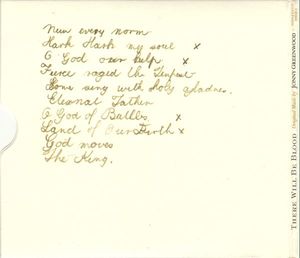 New every morn
Hark Hark my soul x
O God our help x
Fierce raged the Tempest
Come sing with holy gladnes.
Eternal Father
O God of Battles x
Land of Our Birth x
God moves
The King.
THERE WILL BE BLOOD Original Music by JONNY GREENWOOD